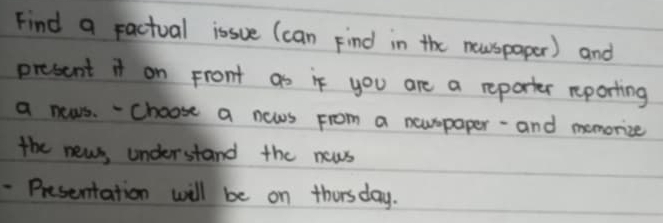 Find a factual issue (can find in the newspaper) and
present it on front as if you are a reporter reporting
a news. - Choose a news from a newspaper - and memorize
the news, understand the news
- Presentation will be on thursday.